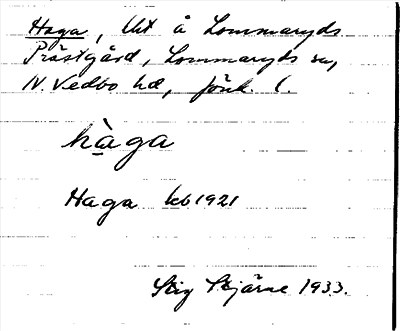 Haga, lht å Lommaryds
Prästgård, Lommaryds sn,
N. Vedbo hd, Jönk. l.
hàga
Haga kb 1921
Stig Stjärne 1933.